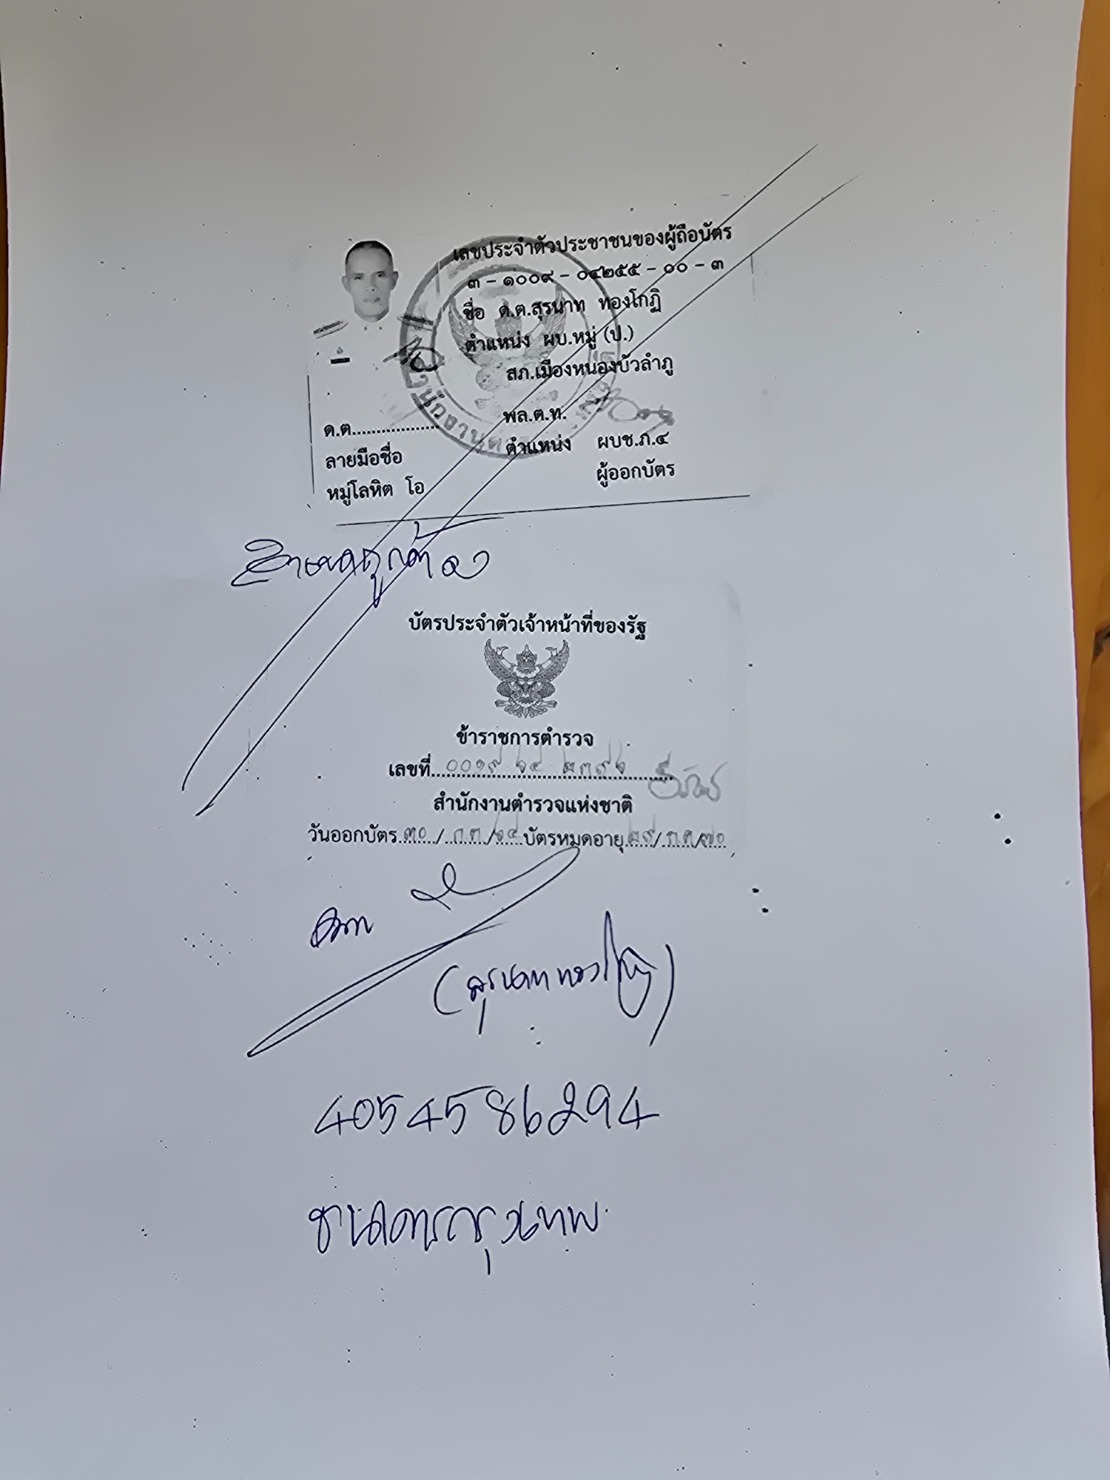 เลขประจำตัวประชาชนของผู้ถือบัตร
๓ - ๑๐๐๙ - ๐๔๒๕๕ - ๐๐ - ๓
ชื่อ ด.ต.สุรนาท ทองโกฏิ
ตำแหน่ง ผบ.หมู่ (ป.)
สภ.เมืองหนองบัวลำภู
พล.ต.ท.
ตำแหน่ง ผบช.ภ.๔
ผู้ออกบัตร
ด.ต.
ลายมือชื่อ
หมู่โลหิต โอ
สำเนาถูกต้อง
บัตรประจำตัวเจ้าหน้าที่ของรัฐ
ข้าราชการตำรวจ
เลขที่
สำนักงานตำรวจแห่งชาติ
วันออกบัตร ๓๐/ก.ค./๖๔ บัตรหมดอายุ ๒๙/ก.ค./๗๐
ด.ต.
(สุรนาท ทองโกฏิ)
4054586294
ธนาคารกรุงเทพ